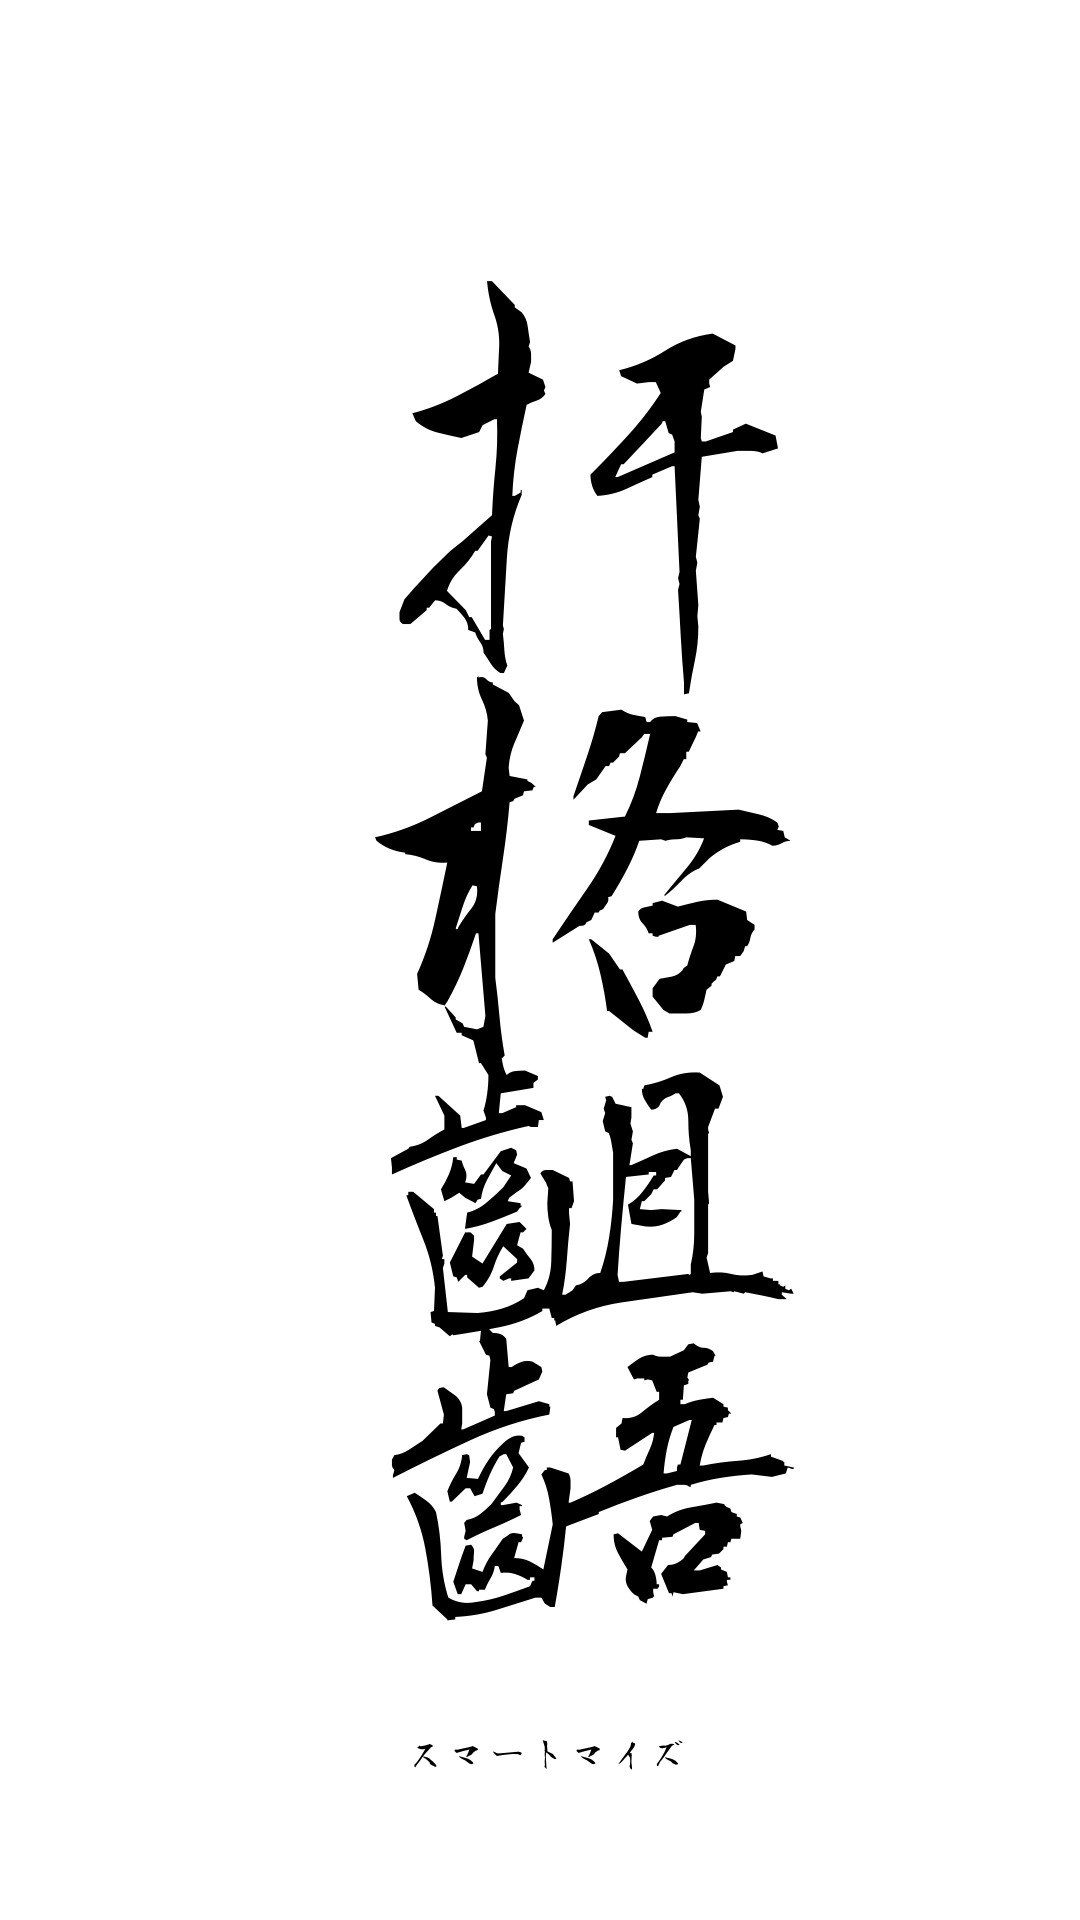 扞格齟齬
スマートマイズ